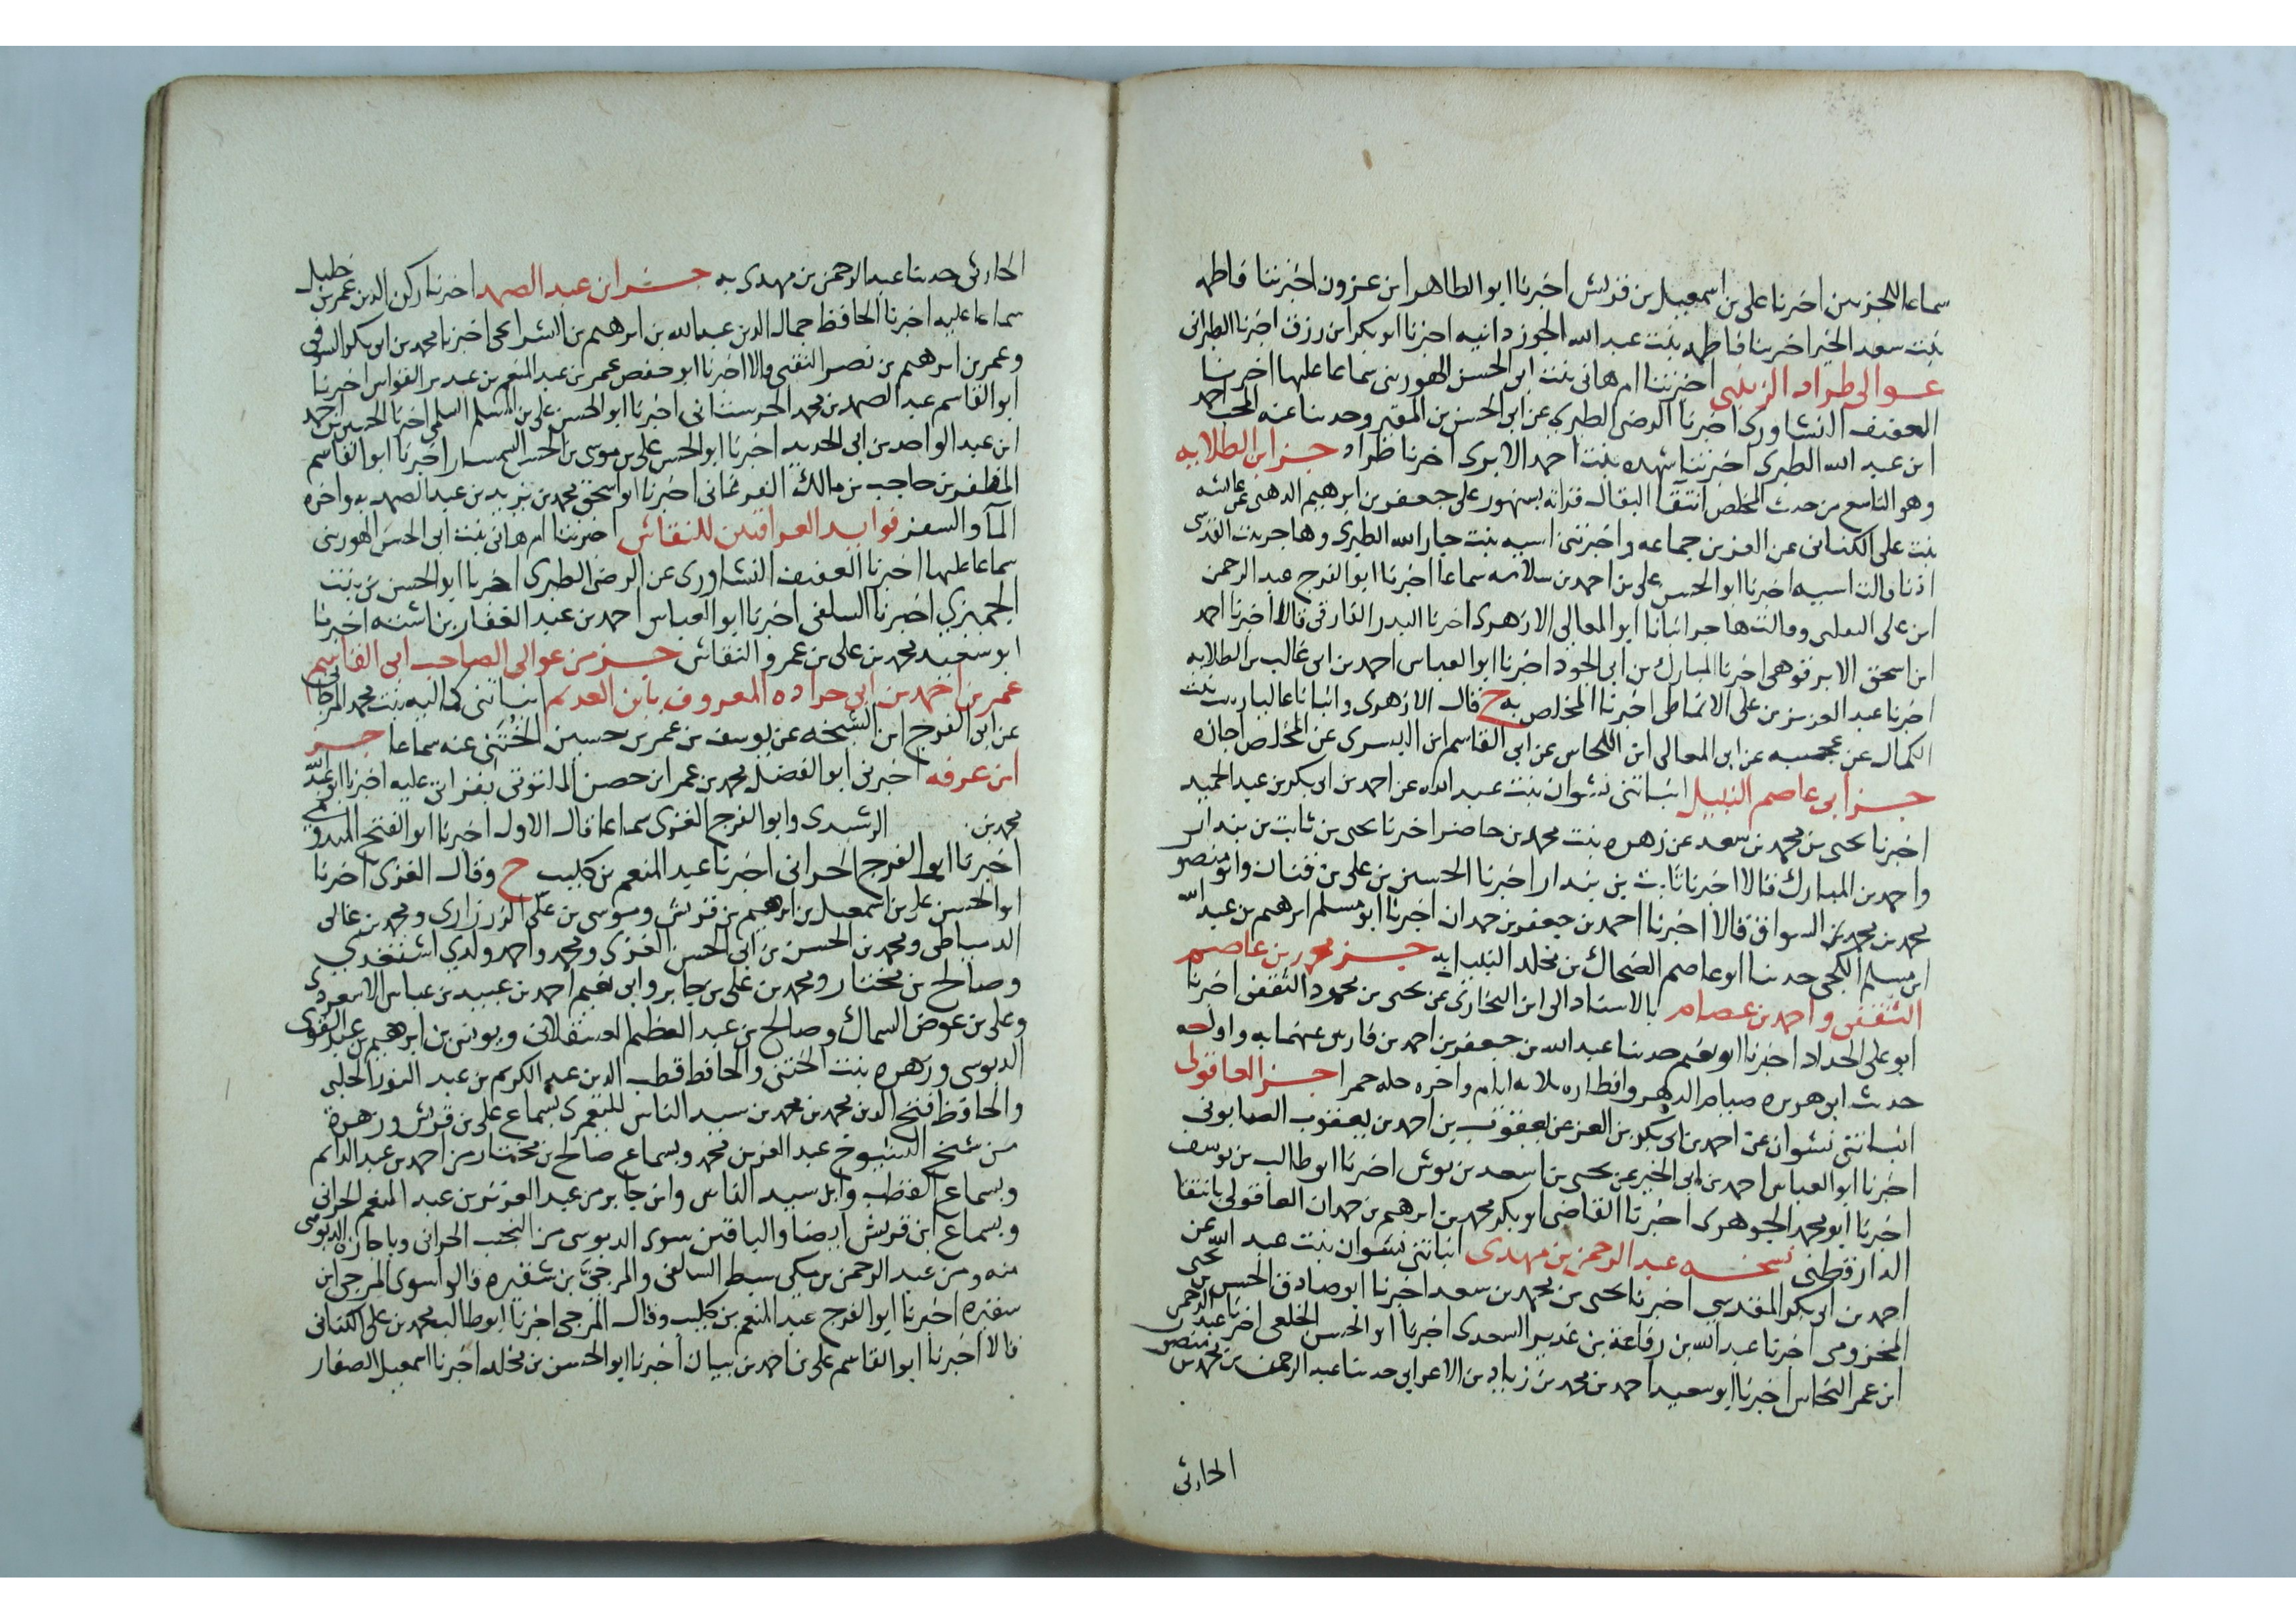 سماعا للجزين اخبرنا علي بن اسمعيل بن قريش اخبرنا ابو الطاهر ابن عزون اخبرتنا فاطمه
بنت سعد الخير اخبرتنا فاطمه بنت عبد الله الجوزدانيه اخبرنا ابو بكر ابن رزق اخبرنا الطبراني
عوالي طراد الزينبي اخبرتنا ام هاني بنت ابي الحسن الهوريني سماعا عليها اخبرنا
العفيف النشاوري اخبرنا الرضي الطبري عن ابي الحسن بن المقير وحدثنا عنه المحب احمد
ابن عبد الله الطبري اخبرتنا شهده بنت احمد الابري اخبرنا طراد جزء ابن الطلايه
وهو التاسع من حديث المخلص انتقا البقال قراته بسنهور علي جعفر بن ابراهيم الدهني عن عائشه
بنت علي الكناني عن العز بن جماعه واخبرتني اسيه بنت جار الله الطبري وهاجر بنت القدسي
اذنا قالت اسيه اخبرنا ابو الحسن علي بن احمد بن سلامه سماعا اخبرنا ابو الفرج عبد الرحمن
ابن علي الثعلبي وقالت هاجر انبانا ابو المعالي الازهري اخبرنا البدر الفارقي قالا اخبرنا احمد
ابن اسحق الابرقوهي اخبرنا المبارك بن ابي الجود اخبرنا ابو العباس احمد بن ابي غالب بن الطلايه
اخبرنا عبد العزيز بن علي الانماطي اخبرنا المخلص به ح قال الازهري وانبانا عاليا زينب بنت
الكمال عن عجيبه عن ابي المعالي ابن اللحاس عن ابي القاسم ابن البسري عن المخلص اجازه
جزء ابي عاصم النبيل انباتني نشوان بنت عبد الله عن احمد بن ابي بكر بن عبد الحميد
اخبرنا يحيى بن محمد بن سعد عن زهره بنت محمد بن حاضر اخبرنا يحيى بن ثابت بن بندار
واحمد بن المبارك قالا اخبرنا ثابت بن بندار اخبرنا الحسين بن علي بن قنان وابو منصور
محمد بن محمد بن السواق قالا اخبرنا احمد بن جعفر بن حمدان اخبرنا ابو مسلم ابراهيم بن عبد الله
ابن مسلم الكجي حدثنا ابو عاصم الضحاك بن مخلد النبيل به جزء محمد بن عاصم
الثقفي واحمد بن عصام بالاسناد الى ابن البخاري عن يحيى بن محمود الثقفي اخبرنا
ابو علي الحداد اخبرنا ابو نعيم حدثنا عبد الله بن جعفر بن احمد بن فارس عنهما به واوله
حديث ابي هريره صيام الدهر وافطاره ثلاثه ايام واخره حله حمرا جزء العاقولي
انباتني نشوان عن احمد بن ابي بكر بن العز عن يعقوب بن احمد بن يعقوب الصابوني
اخبرنا ابو العباس احمد بن ابي الخير عن يحيى بن اسعد بن بوش اخبرنا ابو طالب بن يوسف
اخبرنا ابو محمد الجوهري اخبرنا القاضي ابو بكر محمد بن ابراهيم بن حمدان العاقولي بانتقا
الدارقطني نسخه عبد الرحمن بن مهدي انباتني نشوان بنت عبد الله عن
احمد بن ابي بكر المقدسي اخبرنا يحيى بن محمد بن سعد اخبرنا ابو صادق الحسن بن يحيى
المخزومي اخبرنا عبد الله بن رفاعة بن غدير السعدي اخبرنا ابو الحسن الخلعي اخبرنا عبد الرحمن
ابن عمر النحاس اخبرنا ابو سعيد احمد بن محمد بن زياد بن الاعرابي حدثنا عبد الرحمن بن محمد بن منصور
الحارثي
الحارثي حدثنا عبد الرحمن بن مهدي به جزء ابن عبد الصمد اخبرنا ركن الدين عمر بن خليل
سماعا عليه اخبرنا الحافظ جمال الدين عبد الله بن ابراهيم بن الشرايحي اخبرنا محمد بن ابي بكر السوقي
وعمر بن ابراهيم بن نصر النقبي قالا اخبرنا ابو حفص عمر بن عبد المنعم بن غدير القواس اخبرنا
ابو القاسم عبد الصمد بن محمد الحرستاني اخبرنا ابو الحسن علي بن المسلم السلمي اخبرنا الحسين بن احمد
ابن عبد الواحد بن ابي الحديد اخبرنا ابو الحسن علي بن موسى بن الحسين السمسار اخبرنا ابو القاسم
المظفر بن حاجب بن مالك الفرغاني اخبرنا ابو اسحق محمد بن يزيد بن عبد الصمد به واخره
المآ والسفر فوايد العراقيين للنقاش اخبرتنا ام هاني بنت ابي الحسن الهوريني
سماعا عليها اخبرنا العفيف النشاوري عن الرضي الطبري اخبرنا ابو الحسن بن بنت
الجميزي اخبرنا السلفي اخبرنا ابو العباس احمد بن عبد الغفار بن اشته اخبرنا
ابو سعيد محمد بن علي بن عمرو النقاش جزء من عوالي الصاحب ابي القاسم
عمر بن احمد بن ابي جراده المعروف بابن العديم انباتني كماليه بنت محمد المرجاني
عن ابي الفرج ابن الشيخه عن يوسف بن عمر بن حسين الختني عنه سماعا جزء
ابن عرفه اخبرني ابو الفضل محمد بن عمر ابن حصن الملتوتي بقراتي عليه اخبرنا ابو عبد الله
محمد بن الرشيدي وابو الفرج الغزي سماعا قال الاول اخبرنا ابو الفتح الميدومي
اخبرنا ابو الفرج الحراني اخبرنا عبد المنعم بن كليب ح وقال الغزي اخبرنا
ابو الحسن علي بن اسمعيل بن ابراهيم بن قريش وموسى بن علي الزرزاري ومحمد بن غالي
الدمياطي ومحمد بن الحسن بن ابي الحسن الغزي ومحمد واحمد ولدي اشتغدي
وصالح بن مختار ومحمد بن علي بن جابر وابي نعيم احمد بن عبيد بن عباس الاسعردي
وعلي بن عوض السماك وصالح بن عبد العظيم العسقلاني ويونس بن ابراهيم بن عبد القوي
الدبوسي وزهره بنت الختني والحافظ قطب الدين عبد الكريم بن عبد النور الحلبي
والحافظ فتح الدين محمد بن محمد بن سيد الناس اليعمري بسماع علي بن قريش وزهرة
من شيخ الشيوخ عبد العزيز بن محمد وبسماع صالح بن مختار من احمد بن عبد الدائم
وبسماع القطب وابن سيد الناس وابن جابر من عبد العزيز بن عبد المنعم الحراني
وبسماع ابن قريش ايضا والباقين سوى الدبوسي من النجيب الحراني وباجازة الدبوسي
منه ومن عبد الرحمن بن مكي سبط السلفي والمرجى بن شقيره قالوا سوى المرجي ابن
شقيره اخبرنا ابو الفرج عبد المنعم بن كليب وقال المرجى اخبرنا ابو طالب محمد بن علي الكتاني
قالا اخبرنا ابو القاسم علي بن احمد بن بيان اخبرنا ابو الحسن بن مخلد اخبرنا اسمعيل الصفار